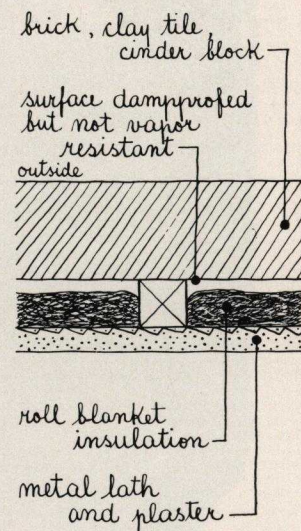 brick, clay tile,
cinder block
surface dampprofed
but not vapor
resistant
outside
roll blanket
insulation
metal lath
and plaster